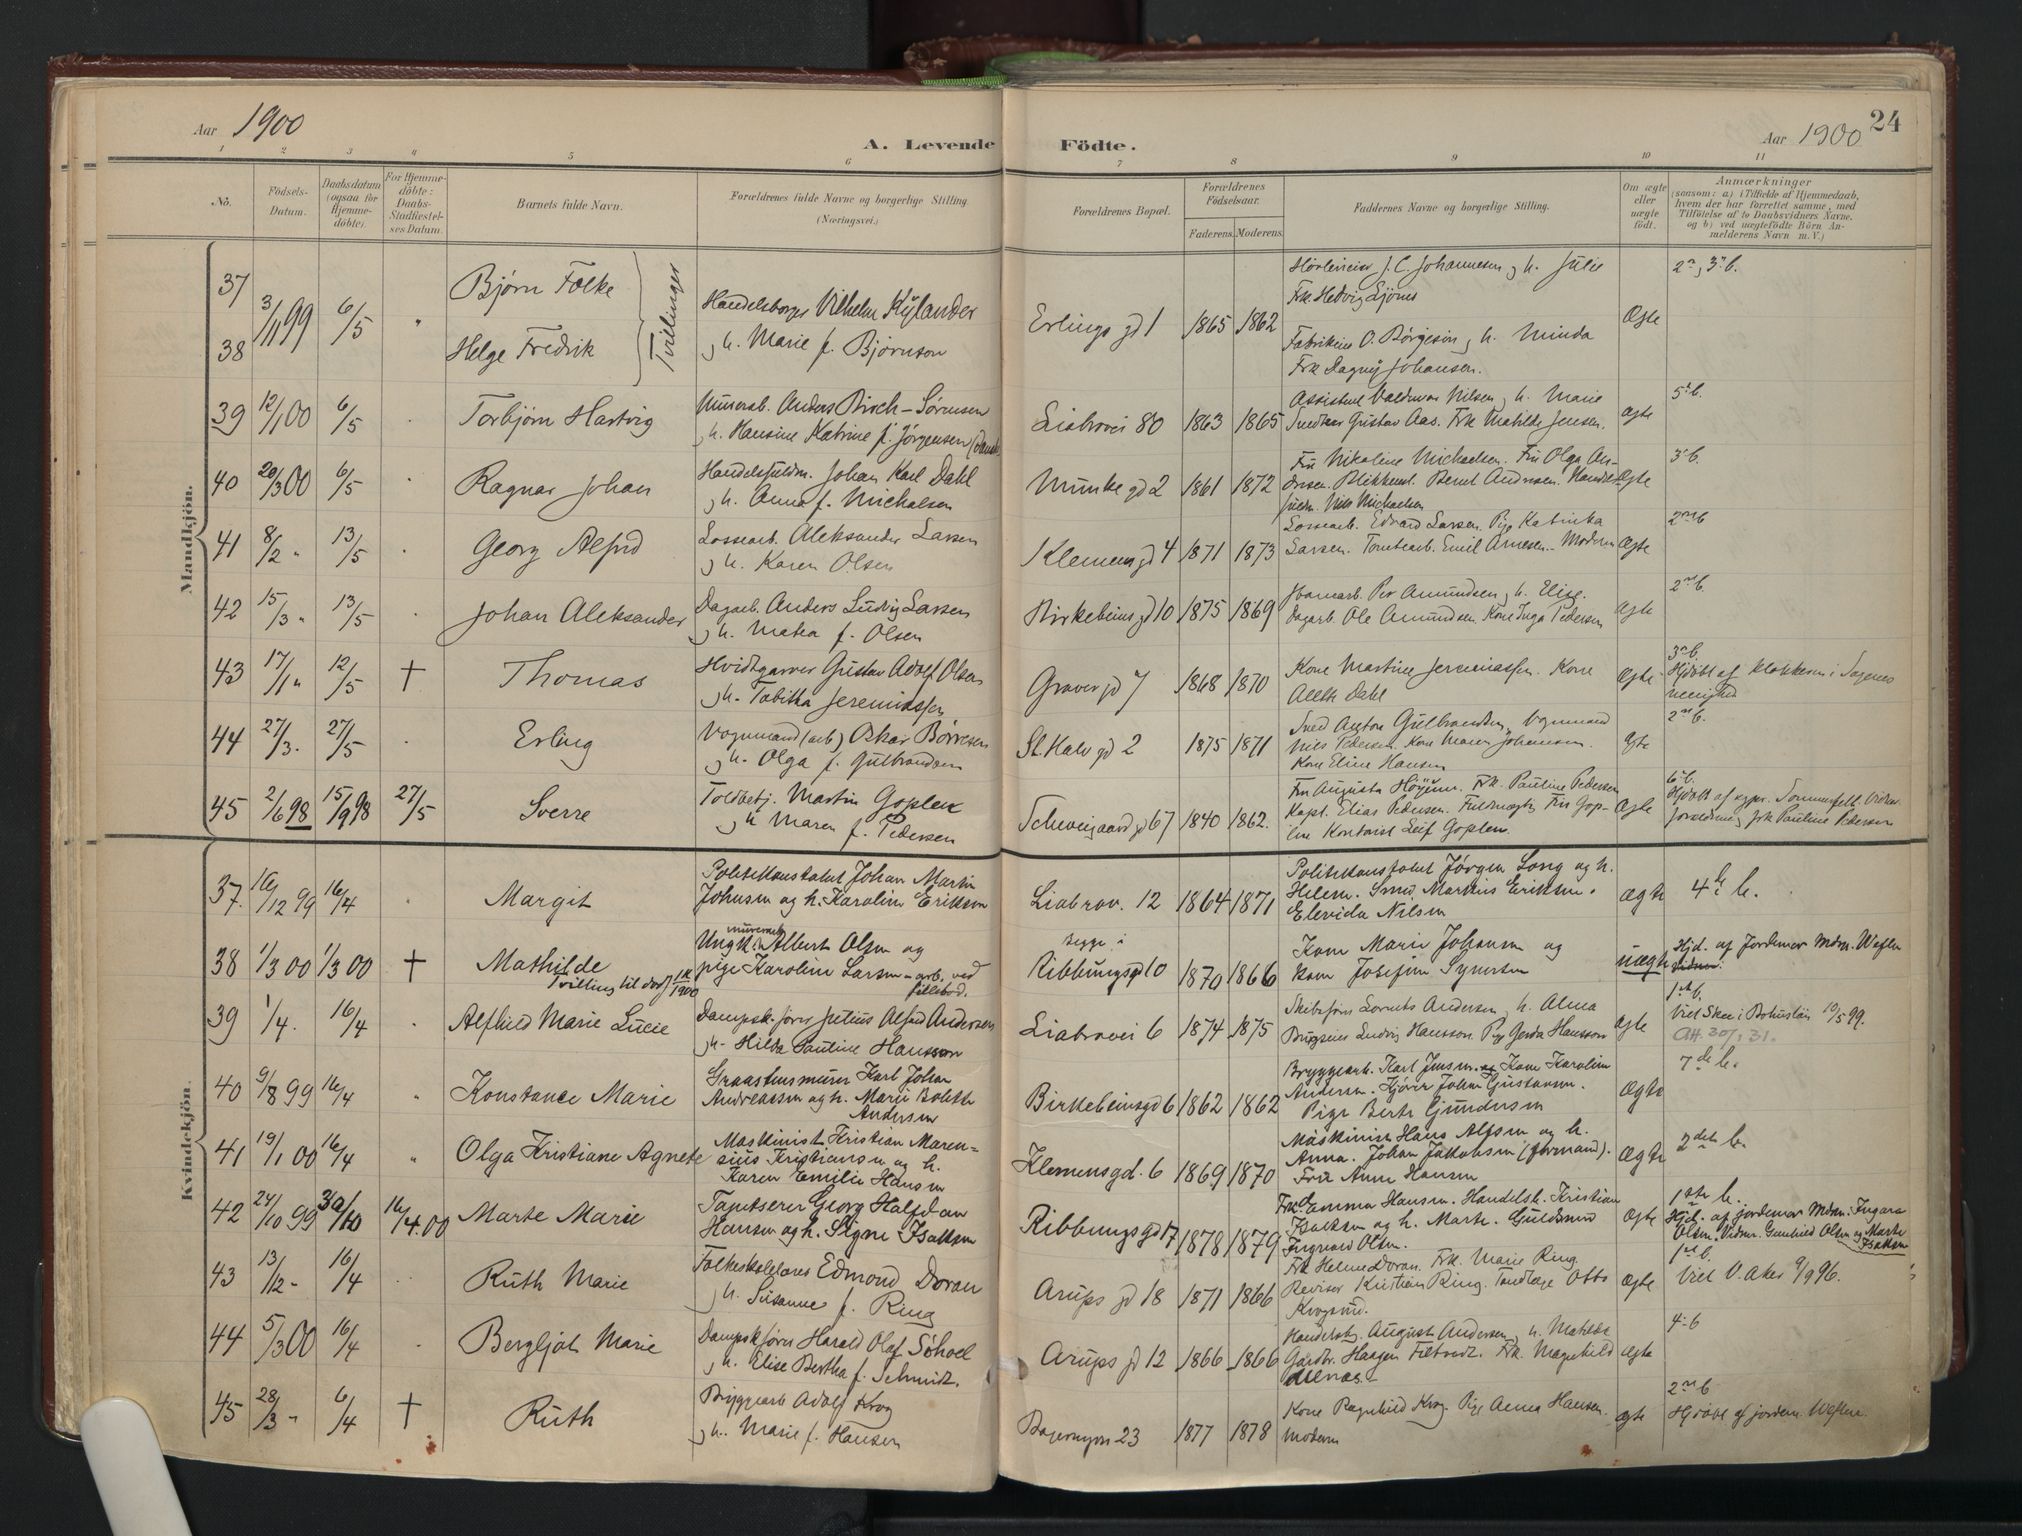 24
Aar 1900
A. Levende Födte.
Aar 1900
1 2 3 4 5 6 7 8 9 10 11
No.
Födsels-Datum.
Daabsdatum (ogsaa for Hjemmedöbte).
For Hjemmedöbte: Daabs-Stadfæstelses Datum.
Barnets fulde Navn.
Forældrenes fulde Navne og borgerlige Stilling. (Næringsvei.)
Forældrenes Bopæl.
Forældrenes Födselsaar.
Faderens. Moderens.
Faddernes Navne og borgerlige Stilling.
Om ægte eller uægte födt.
Anmærkninger
(saasom: a) i Tilfælde af Hjemmedaab,
hvem der har forrettet samme, med
Tilföielse af to Daabsvidners Navne.
og b) ved uægtefödte Börn An-
melderens Navn m. V.)
Mandkjön.
37 3/11 99 6/5 " Bjørn Folke
38 Helge Fredrik
Tvilinger
Handelsborger Vilhelm Kylander
og h. Marie f. Bjørnson
Erlings gd 1 1865 1862
J. C. Johannesen og h. Julie
Frk. Hedvig
O. Børgeson og h. Minda
Frk Dagny Johansen.
Ægte
2n, 3i b.
39 12/1 00 6/5 Torbjørn Hartvig
Murersv. Anders Birch-Sørensen
og h. Hansine Katrine f. Jørgensen
Liabrovei 80 1863 1865
Assistent Valdemar Nilsen og h. Marie
Gustav Aas. Frk Mathilde Jensen.
Ægte
5t b.
40 20/3 00 6/5 Ragnar Johan
Handelsfuldm. Johan Karl Dahl
og h. Anna f. Michalsen
Munke gd 2 1861 1872
Fru Nikoline Michaelsen. Fru Olga An-
dresen. Blikkensl. Bernt Andresen. Handels-
fuldm. Nils Michaelsen
Ægte
3i b.
41 8/2 " 13/5 Georg Alfred
Lossearb. Aleksander Larsen
og h. Karen Olsen
Klemens gd 4 1871 1873
Lossearb. Edvard Larsen. Pige Katinka
Larsen. Tomtearb. Emil Arnesen. Moderen
Ægte
2net b
42 15/3 " 13/5 Johan Aleksander
Dagarb. Anders Ludvig Larsen
og h. Matea f. Olsen
Birkebeins gd 10 1875 1869
Per Amundsen og h. Elise.
Dagarb. Ole Amundsen. Kone Inga Pedersen
Ægte
2net b.
43 17/1 " 12/5 † Thomas
Hvidtgarver Gustav Adolf Olsen
og h. Tabitha Jeremiassen
Graver gd 7 1868 1870
Kone Martine Jeremiassen. Kone
Dahl
Ægte
3n b.
Hjdöbt af klokkeren i Sagenes
menighed
44 27/3 . 27/5 Erling
Vognmand (arb) Oskar Børresen
og h. Olga f. Gulbrandsen
St. Halv gd 2 1875 1871
Anton Gulbrandsen, Vognmand
Nils Pedersen. Kone Maren Johannesen.
Kone Eline Hansen
Ægte
2net b.
45 2/6 98 15/9 98 27/5 Sverre
Toldbetj. Martin Goplen
og h Maren f. Pedersen
Schweigaard gd 67 1840 1862.
Fru Augusta. Frk. Pauline Pedersen
Kapt. Elias Pedersen. Fru Gop-
len Kontorist Leif Goplen.
Ægte
6t b.
Hjdöbt af Sommerfelt. Vidner
forældrene og frk Pauline Pedersen
Kvindekjön.
37. 16/12 99 16/4 " Margit
Politikonstabel Johan Martin
Johnsen og h. Karoline Eriksen
Liabrov. 12 1864 1871
Politikonstabel Jørgen Long og h.
Helene. Smed Markus Eriksen.
Elevida Nilsen
ægte
4de b.
38 1/3 00 1/3 00 † Mathilde
Tvilling til dødf 1/3 1900
Ungk. murerarb Albert Olsen og
pige Karoline Larsen - arb. ved
begge i
Ribbungsgd 10 1870 1866
Kone Marie Johansen og
Kone Josefine Synersen
uægte
Hjd. af Jordemor Mdm. Weflen
39 1/4. 16/4 Alfhild Marie Lucie
Dampsk. fører Julius Alfred Andersen
og h- Hilda Pauline Hansson
Liabrovei 6 1874 1875
Skibsfører Lornts Andersen og h. Alma
Ludvig Hansson. Pige Gerda Hansson
Ægte
1ste b.
Viet Skee i Bohuslän 10/5 99.
Att 30/1 31.
40 9/8 99 16/4 " Konstance Marie
Graastensmurer Karl Johan
Andreassen og h. Marie Bolette
Andersen
Birkebeinsgd 6 1862 1862
Bryggearb. Karl Jensen. Kone Karoline
Andersen. Kjører Johan Gustavsen.
Pige Berte Gundersen
Ægte
7de b.
41 19/1 00 16/4 " Olga Kristiane Agnete
Maskinist Kristian Maren-
sius Kristiansen og h.
Karen Emilie Hansen
Klemensgd. 6 1869 1870
Maskinist Hans Alfsen og h.
Anna. Johan Jakobsen (formand).
Fru Anne Hansen
Ægte
2det b.
42 24/10 99 30/10 16/4.00 Marte Marie
Tapetserer Georg Halfdan
Hansen og h. Signe Isaksen
Ribbungsgd 17 1878 1879
Frk. Emma Hansen. Handelsb. Kristian
Isaksen og h. Marte. Guldsmed
Olsen.
Ægte
1ste b.
Hjd. af jordemor Mdm. Ingara
Olsen. Vidner Gunhild Olsen og Marte
Isaksen
43 13/12 - 16/4 Ruth Marie
Folkeskolelærer Edmond Doran
og h. Susanne f. Ring
Arups gd 18 1871 1866
Frk Helene Doran. Frk. Marie Ring.
Revisor Kristian Ring. Tandlæge Otto
Krogsrud.
Ægte
1st b.
Viet V. Aker 9/9 96.
44 5/3 00 16/4 Bergljot Marie
Dampskfører Harald Olaf Söhoel
og h. Elise Bertha f. Schmidt.
Arups gd 12 1866 1866
Handelsbg. August Andersen og h. Mathilde
Gaardbr. Haagen. Frk. Magnhild
Ægte
4-b
45 28/3 " 6/4 † Ruth
Bryggearb Adolf Krog
og h. Marie f. Hansen
23 1877 1878
Kone Ragnhild Krog. Pige Anna Hansen.
Moderen
Ægte
2net b
Hjdöbt af jordem. Weflen.